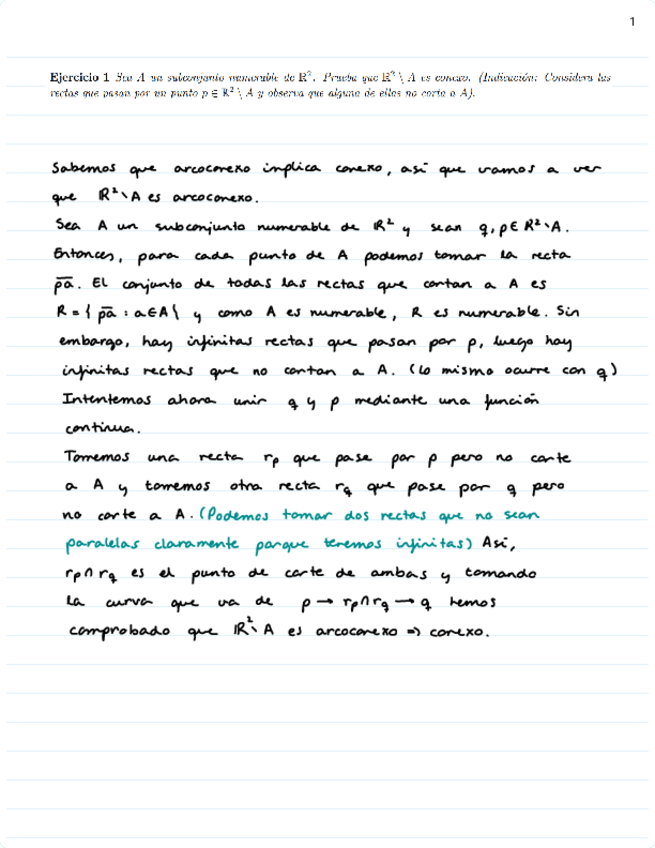 1
Ejercicio 1 Sea A un subconjunto numerable de ℝ². Prueba que ℝ² \ A es conexo. (Indicación: Considera las
rectas que pasan por un punto p ∈ ℝ² \ A y observa que alguna de ellas no corta a A).
Sabemos que arcoconexo implica conexo, así que vamos a ver
que ℝ²\A es arcoconexo.
Sea A un subconjunto numerable de ℝ² y sean q,p∈ℝ²\A.
Entonces, para cada punto de A podemos tomar la recta
p̅a̅. El conjunto de todas las rectas que cortan a A es
R={p̅a̅ : a∈A} y como A es numerable, R es numerable. Sin
embargo, hay infinitas rectas que pasan por p, luego hay
infinitas rectas que no cortan a A. (Lo mismo ocurre con q)
Intentemos ahora unir q y p mediante una función
continua.
Tomemos una recta rₚ que pase por p pero no corte
a A y tomemos otra recta r_q que pase por q pero
no corte a A. (Podemos tomar dos rectas que no sean
paralelas claramente porque tenemos infinitas) Así,
rₚ∩r_q es el punto de corte de ambas y tomando
la curva que va de p → rₚ∩r_q → q hemos
comprobado que ℝ²\A es arcoconexo ⇒ conexo.